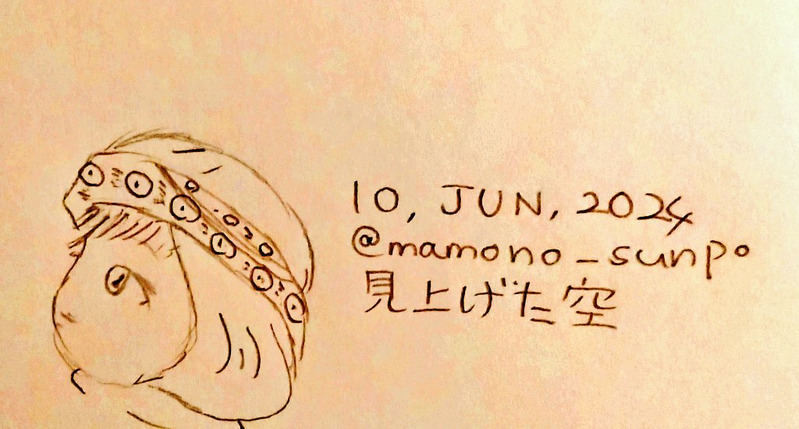 10, JUN, 2024
@mamono_sunpo
見上げた空